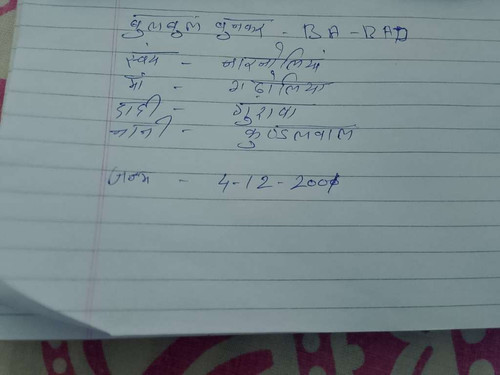 बुलबुल बुनकर - BA - BAD
स्वंय - नारनोलियां
मां - गढ़ोलिया
दादी - गुरावा
नानी - कुण्डलवाल
जन्म - 4-12-2001